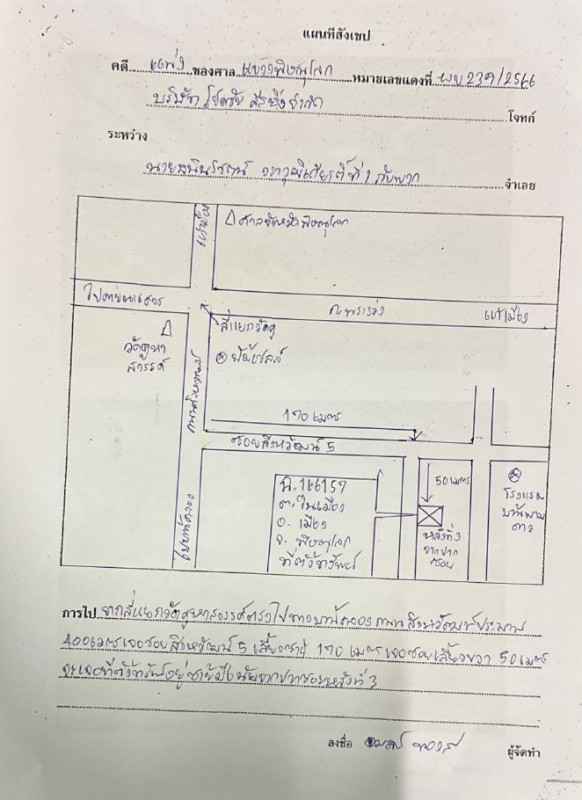 แผนที่สังเขป
คดี แพ่ง ของศาล แขวงพิษณุโลก หมายเลขแดงที่ ผบ 239/2566
บริษัท โจทก์
ระหว่าง
ที่ 1 กับพวก จำเลย
ศาลจังหวัดพิษณุโลก
ถ.พระร่วง เข้าเมือง
สี่แยกวัดคู
วัดคูหา
สวรรค์
170 เมตร
ซอยสิงหวัฒน์ 5
น.166157
ต.ในเมือง
อ.เมือง
จ.พิษณุโลก
ที่ตั้งทรัพย์
50 เมตร
หลังที่ 3
จากปาก
ซอย
โรงแรม
การไป จากสี่แยกวัดคูหาสวรรค์ตรงไปทางบ้านคลอง ถนนสิงหวัฒน์ประมาณ
400 เมตร เจอซอยสิงหวัฒน์ 5 เลี้ยวซ้าย 170 เมตร เจอซอยเลี้ยวขวา 50 เมตร
จะเจอที่ตั้งทรัพย์อยู่ซ้ายมือนับจากปากซอยหลังที่ 3
ลงชื่อ ผู้จัดทำ